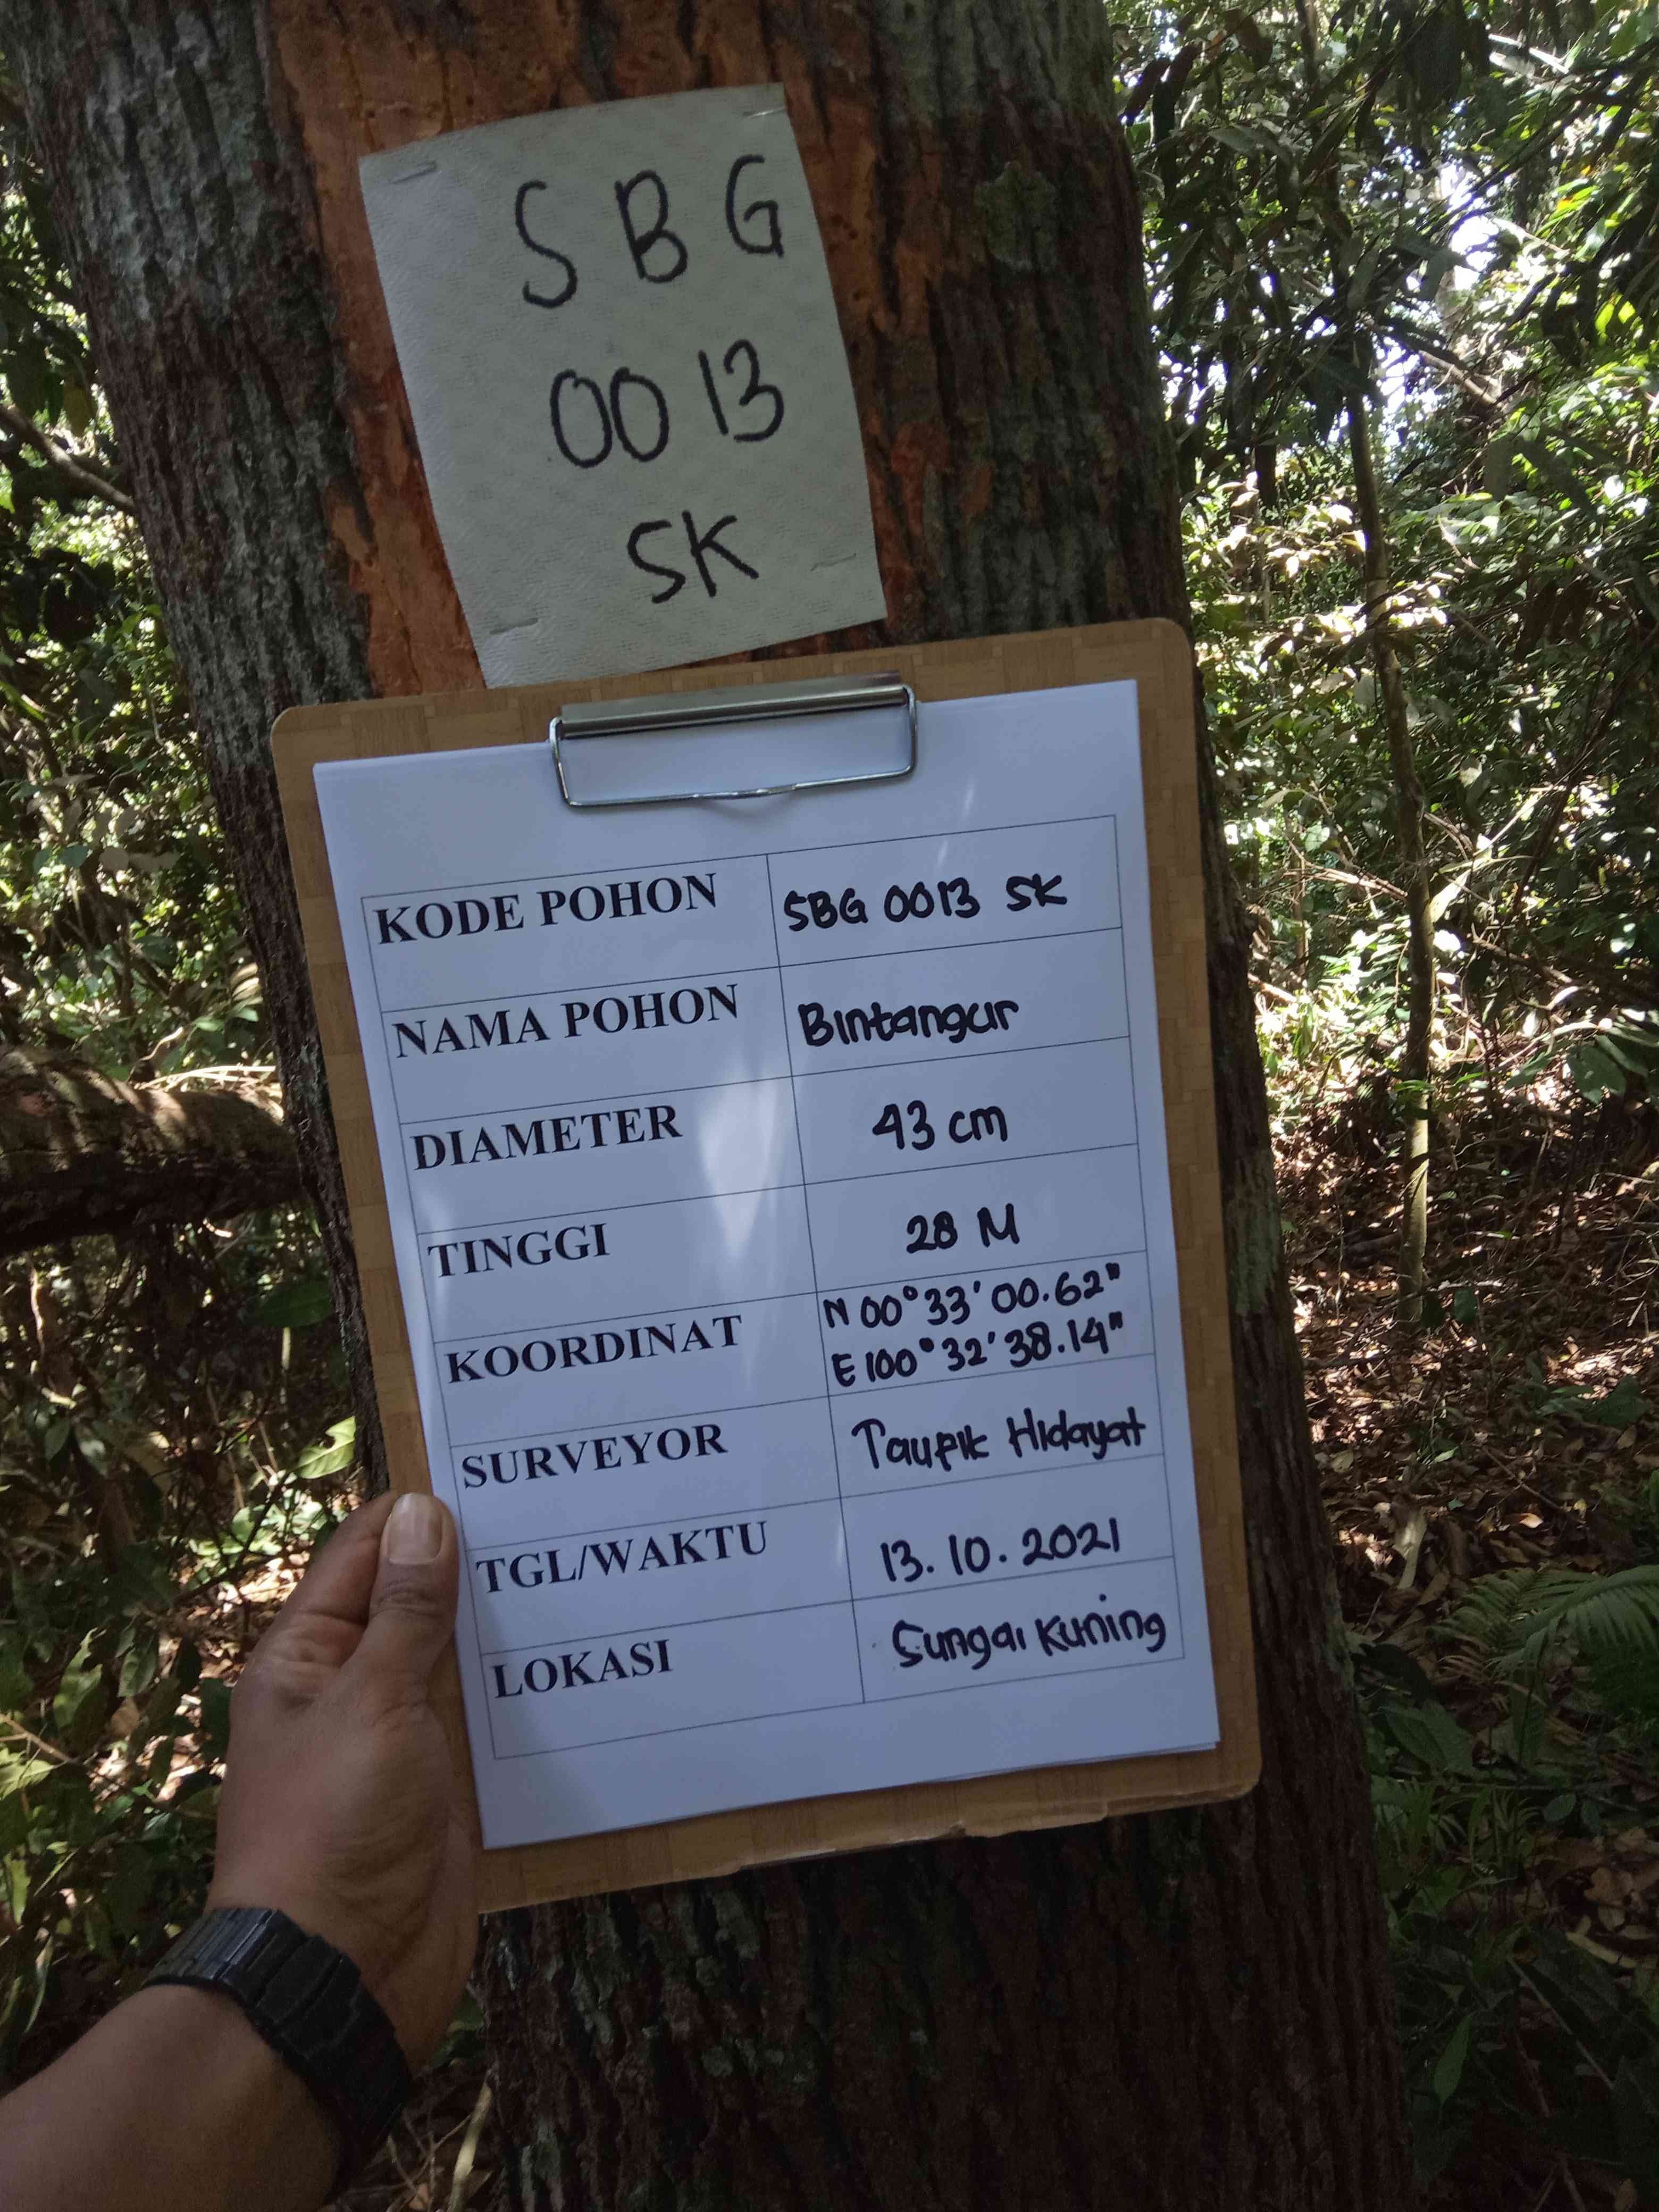 SBG
0013
SK
KODE POHON SBG 0013 SK
NAMA POHON Bintangur
DIAMETER 43 cm
TINGGI 28 M
KOORDINAT N 00°33'00.62"
E 100°32'38.14"
SURVEYOR Taupik Hidayat
TGL/WAKTU 13.10.2021
LOKASI Sungai Kuning